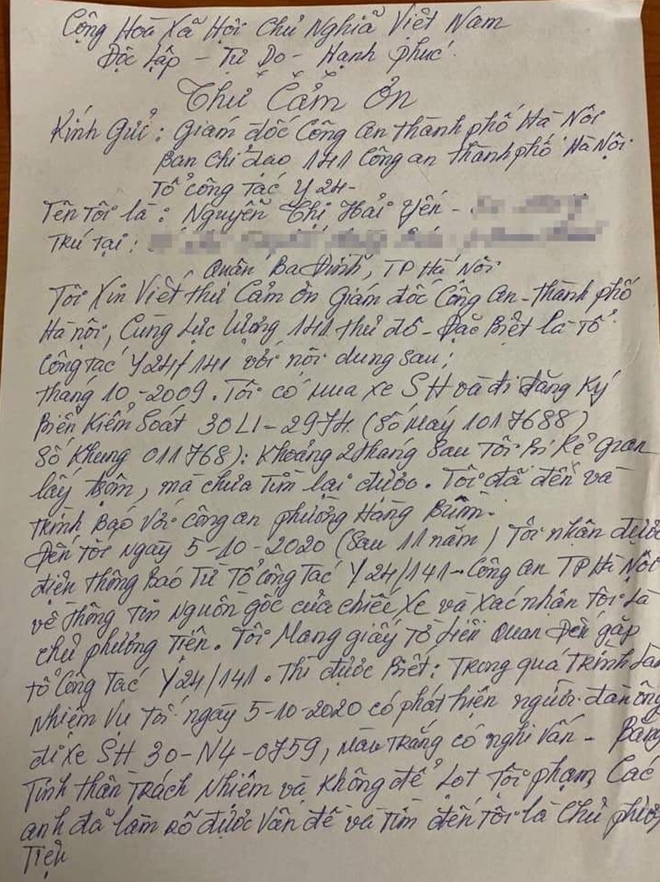 Cộng Hoà Xã Hội Chủ Nghĩa Việt Nam
Độc Lập - Tự Do - Hạnh Phúc
Thư Cảm Ơn
Kính Gửi : Giám đốc Công An thành phố Hà Nội
Ban chỉ đạo 141 Công an thành phố Hà Nội
Tổ công tác Y24-
Tên Tôi là : Nguyễn Thị Hải Yến -
Trú tại :
Quận Ba Đình, TP Hà Nội
Tôi Xin Viết thư Cảm Ơn Giám đốc Công An - thành phố
Hà nội, Cùng Lực Lượng 141 thủ đô - Đặc Biệt là Tổ
Công tác Y24/141 với nội dung sau;
tháng 10-2009. Tôi có mua xe SH và đi đăng Ký
Biển Kiểm Soát 30L1-2974 (Số máy 1017688)
Số Khung 011768): Khoảng 2 tháng sau Tôi Bị Kẻ gian
lấy trộm, mà chưa Tìm lại được. Tôi đã đến và
trình Báo với công an phường Hàng Buồm.
Đến tối ngày 5-10-2020 (Sau 11 năm) Tôi nhận được
điện thông Báo Từ Tổ công Tác Y24/141 - Công an TP Hà Nội
về thông Tin Nguồn gốc của chiếc Xe và Xác nhận Tôi là
chủ phương Tiện. Tôi Mang giấy tờ liên Quan Đến gặp
tổ Công Tác Y24/141. Thì được Biết: Trong quá Trình làm
Nhiệm Vụ Tối ngày 5-10-2020 có phát hiện người đàn ông
đi xe SH 30-N4-0759, màu Trắng có nghi Vấn - Bằng
Tinh thần Trách Nhiệm và Không để Lọt Tội phạm, Các
anh đã làm rõ được Vấn đề và Tìm đến Tôi là Chủ phương
Tiện